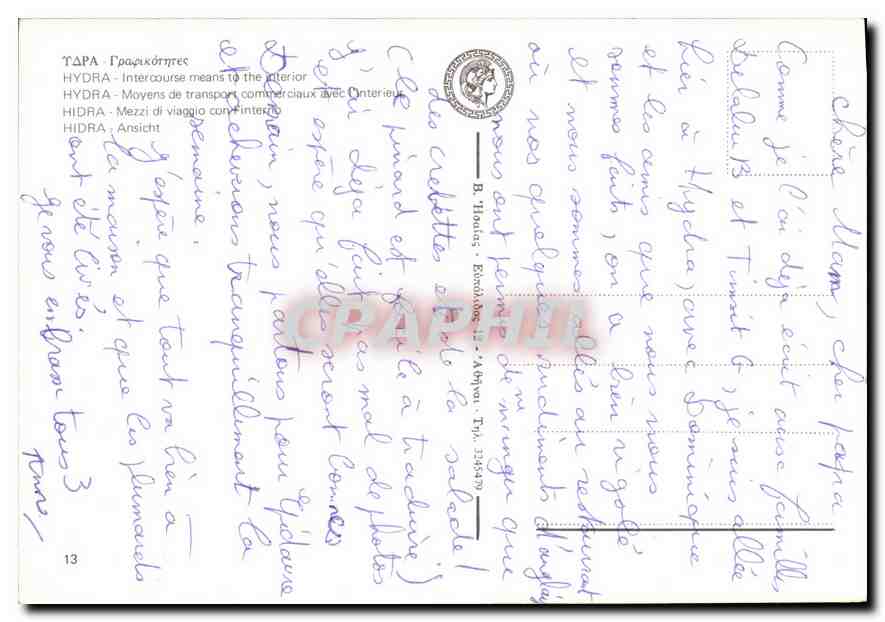 ΥΔΡΑ - Γραφικότητες
HYDRA - Intercourse means to the interior
HYDRA - Moyens de transport commerciaux avec l'interieur
HIDRA - Mezzi di viaggio con l'interno
HIDRA - Ansicht
13
Β. Ἡσαΐας - Εὐπόλιδος 12 - Ἀθῆναι - Τηλ. 3245479
CPAPHIL
chère Mam, cher papa
Comme je l'ai déjà écrit aux familles
et je suis allée
hier à Hydra, avec Dominique
et les amis que nous nous
sommes faits, on a bien rigolé
et nous sommes allés au restaurant
où nos quelques rudiments d'anglais
nous ont permis de ne manger que
des crevettes et de la salade!
(le pinard est facile à traduire)
j'ai déjà fait pas mal de photos
et espère qu'elles seront bonnes
Demain, nous partons pour Epidaure
et achevrons tranquillement la
semaine.
J'espère que tout va bien à
la maison et que les plumards
ont été livrés,
Je vous embrasse tous 3